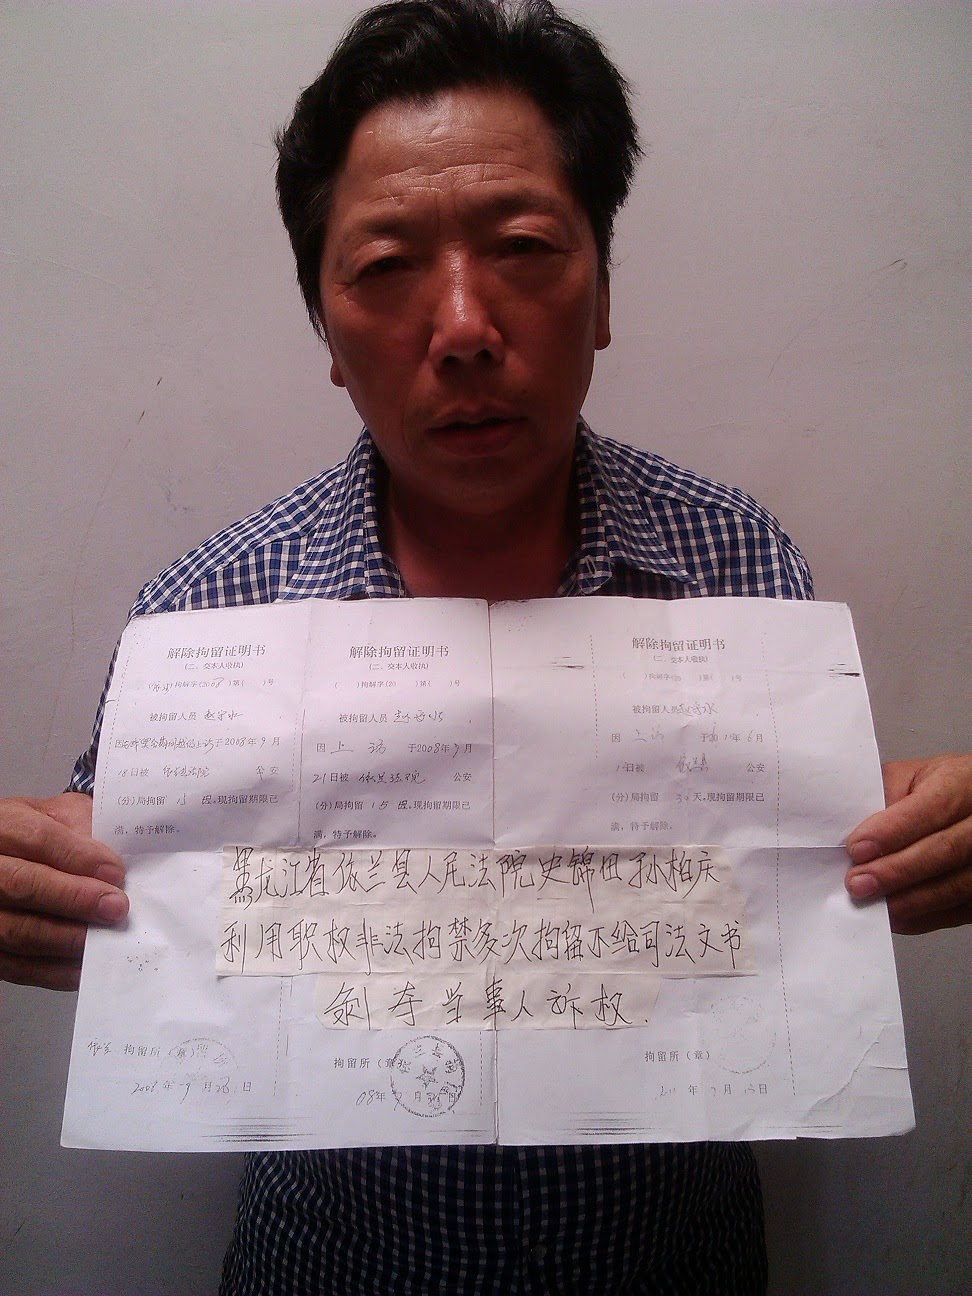 解除拘留证明书
(二、交本人收执)
拘解字(2008)第( )号
被拘留人员
上访于2008年9月
18日被 依兰法院 公安
(分)局拘留 15 日。现拘留期限已
满，特予解除。
依兰 拘留所（章）
2008年9月28日
解除拘留证明书
(二、交本人收执)
( )拘解字(20 )第( )号
被拘留人员
因 上访 于2008年9月
21日被 依兰法院 公安
(分)局拘留 15 日。现拘留期限已
满，特予解除。
拘留所（章）
解除拘留证明书
(二、交本人收执)
( )拘解字(20 )第( )号
被拘留人员
因 上访 于2011年6月
日被 依兰 公安
(分)局拘留 30 天。现拘留期限已
满，特予解除。
拘留所（章）
年 月 日
黑龙江省依兰县人民法院史锦田孙柏庆
利用职权非法拘禁多次拘留不给司法文书
剥夺当事人诉权.